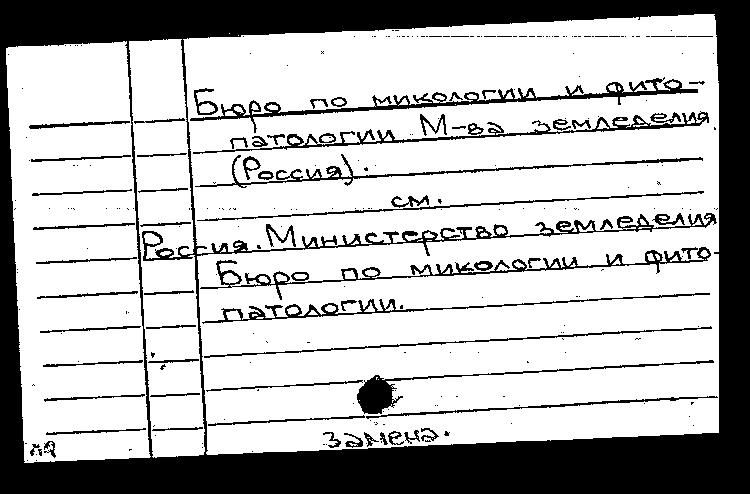 Бюро по микологии и фито-
патологии М-ва земледелия
(Россия).
см.
Россия. Министерство земледелия
Бюро по микологии и фито-
патологии.
замена.